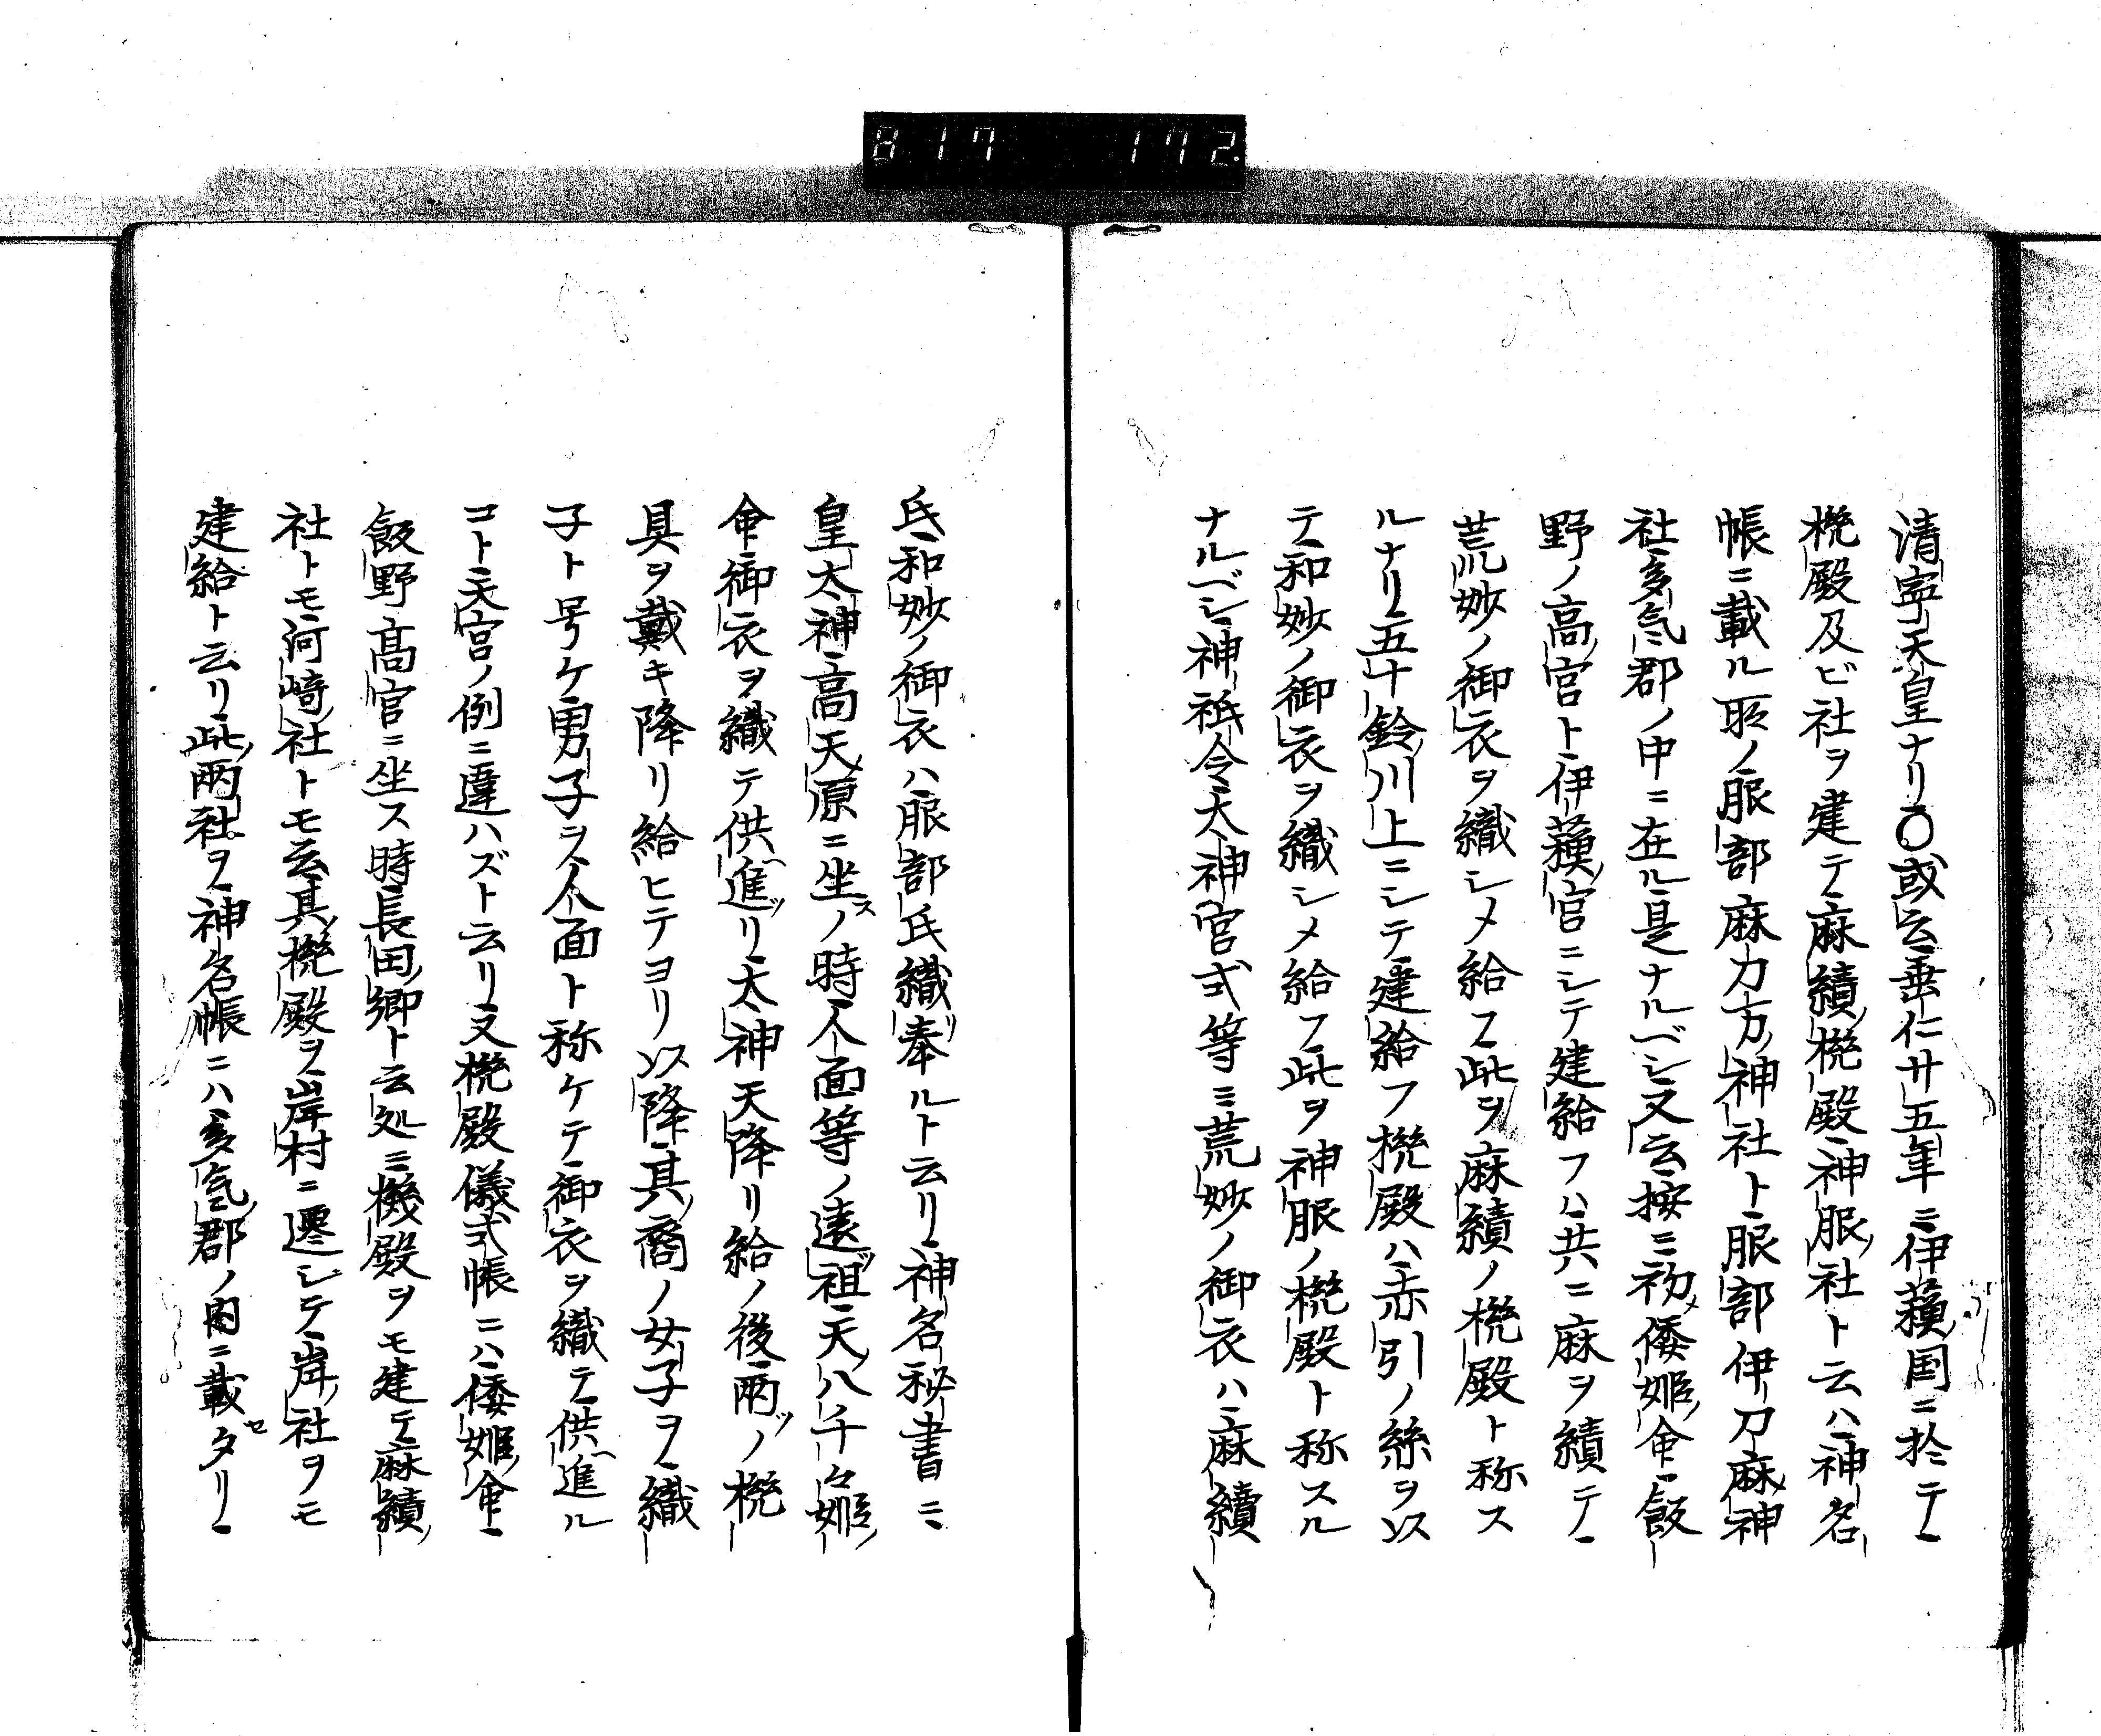 817 172.
清寧天皇ナリ〇或云垂仁廿五年ニ伊蘓国ニ於テ
機殿及ビ社ヲ建テ麻績機殿神服社ト云ハ神名
帳ニ載ル所ノ服部麻刀方神社ト服部伊刀麻神
社多気郡ノ中ニ在ル是ナルベシ又云按ニ初メ倭姫命飯
野ノ高宮ト伊蘓宮ニシテ建給フハ共ニ麻ヲ績テ
荒妙ノ御衣ヲ織シメ給フ此ヲ麻績ノ機殿ト称ス
ルナリ五十鈴川上ニシテ建給フ機殿ハ赤引ノ絲ヲ以
テ和妙ノ御衣ヲ織シメ給フ此ヲ神服ノ機殿ト称スル
ナルベシ神祇令大神宮式等ニ荒妙ノ御衣ハ麻績
氏和妙ノ御衣ハ服部氏織リ奉ルト云リ神名秘書ニ
皇太神高天原ニ坐スノ時人面等ノ遠祖天八千々姫
命御衣ヲ織テ供進リ太神天降リ給ノ後両ツノ機
具ヲ戴キ降リ給ヒテヨリ以降其裔ノ女子ヲ織
子ト号ケ男子ヲ人面ト称ケテ御衣ヲ織テ供進ル
コト天宮ノ例ニ違ハズト云リ又機殿儀式帳ニハ倭姫命
飯野高宮ニ坐ス時長田郷ト云処ニ機殿ヲモ建テ麻績
社トモ河崎社トモ云其機殿ヲ岸村ニ遷シテ岸社ヲモ
建給ト云リ此両社ヲ神名帳ニハ多気郡ノ内ニ載セタリ